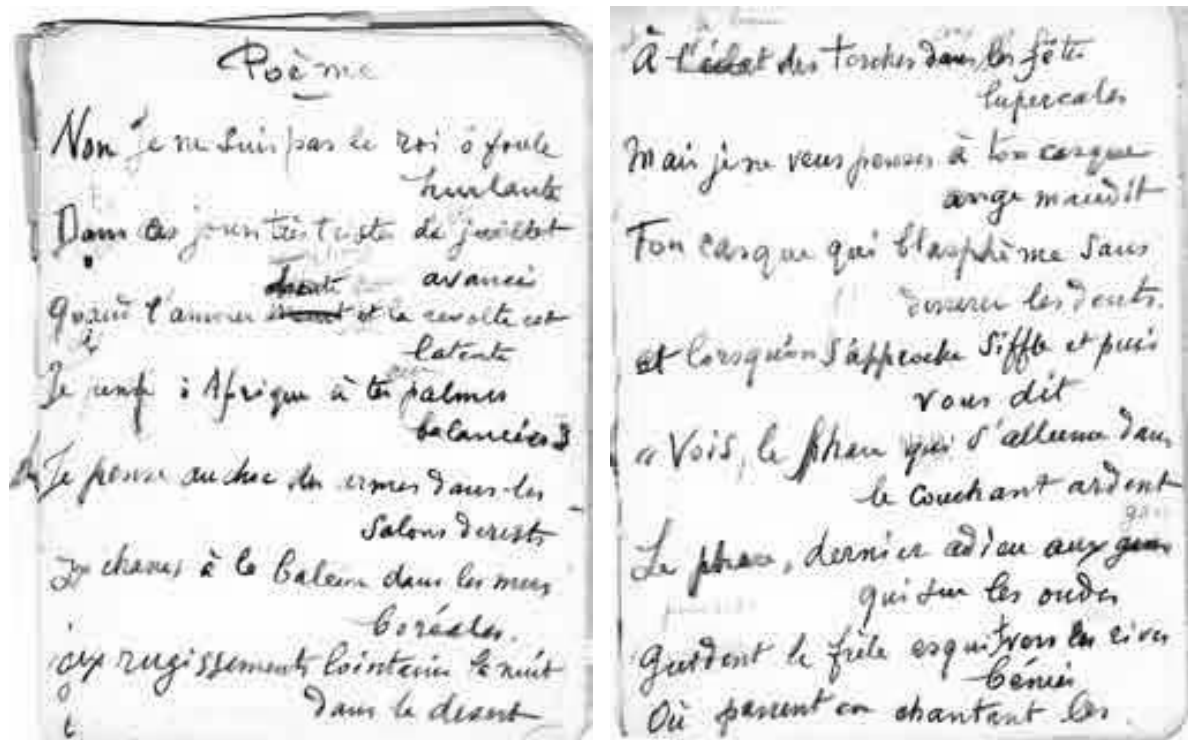 Poème
Non je ne suis pas le roi ô foule
hurlante
Dans ces jours très tristes de juillet
avancé
Quand l'amour et la révolte est
latente
Je pense à Afrique à tes palmes
balancées
Je pense au choc des armes dans les
salons déserts
aux chasses à la baleine dans les mers
boréales.
aux rugissements lointains la nuit
dans le désert
À l'éclat des torches dans les fêtes
lupercales
Mais je ne veux penser à ton casque
ange maudit
Ton casque qui blasphème sans
desserrer les dents.
et lorsqu'on s'approche siffle et puis
vous dit
« Vois, le phare qui s'allume dans
le couchant ardent
Le phare, dernier adieu aux gens
qui sur les ondes
Guident le frêle esquif vers les rives
bénies
Où passent en chantant les